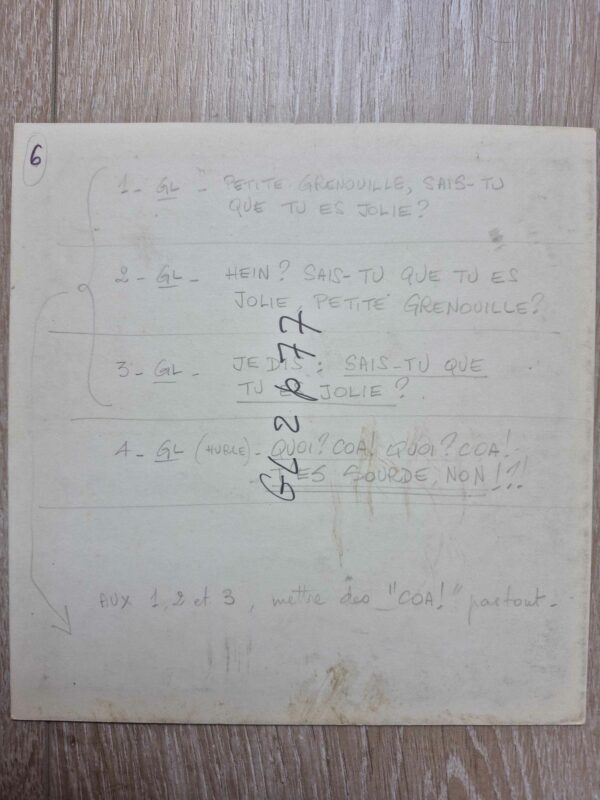 6
1 - GL - PETITE GRENOUILLE, SAIS-TU
QUE TU ES JOLIE ?
2 - GL - HEIN ? SAIS-TU QUE TU ES
JOLIE, PETITE GRENOUILLE ?
3 - GL - JE DIS : SAIS-TU QUE
TU ES JOLIE ?
4 - GL (HURLE) - QUOI ? COA ! QUOI ? COA !
T'ES SOURDE, NON !?!
GL 2 p 77
AUX 1, 2 et 3, mettre des "COA!" partout -